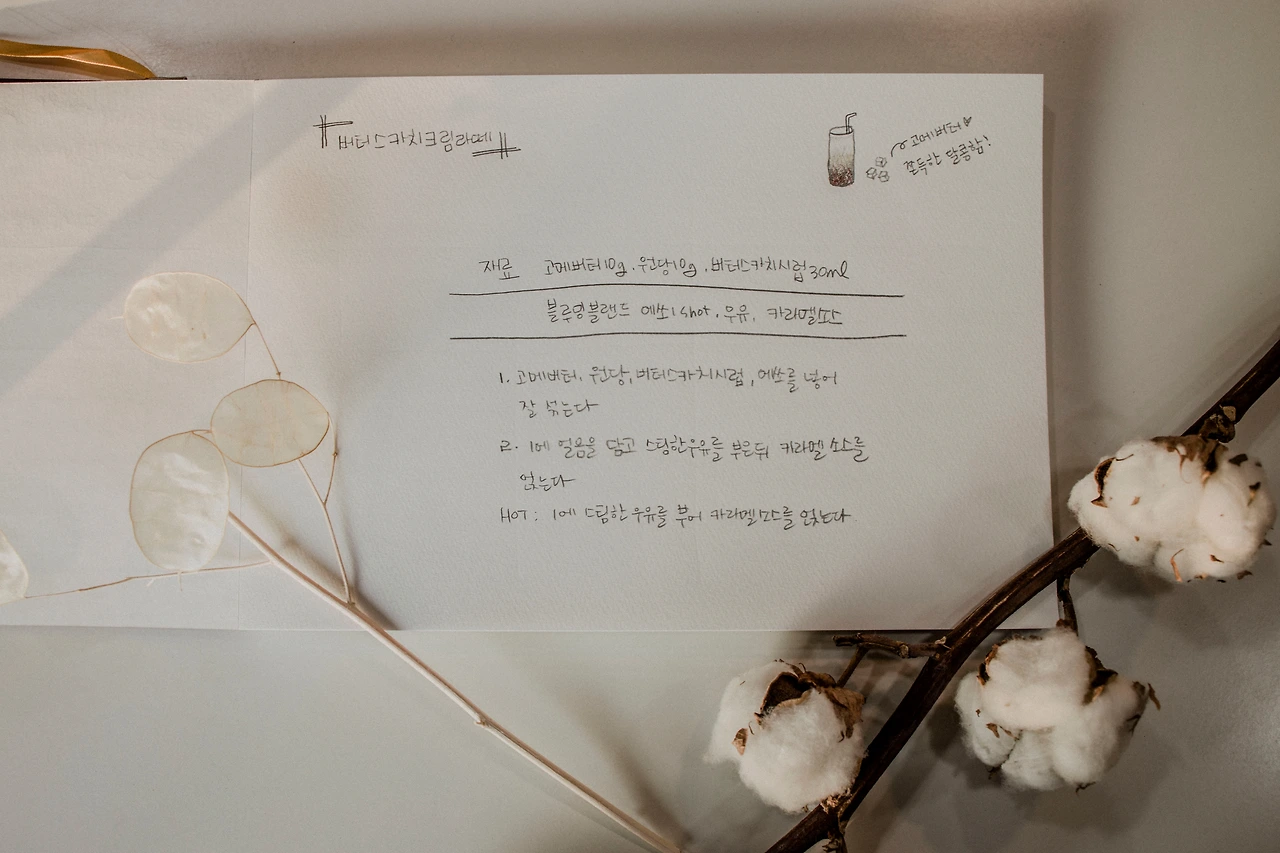 버터스카치크림라떼
고메버터
쫀득한 달콤함!
재료 고메버터10g. 원당10g. 버터스카치시럽 30ml
블루밍블랜드 에쏘1shot. 우유. 카라멜소스
1. 고메버터. 원당, 버터스카치시럽, 에쏘를 넣어
잘 섞는다
2. 1에 얼음을 담고 스팀한우유를 부은뒤 카라멜 소스를
얹는다
HOT: 1에 스팀한 우유를 부어 카라멜소스를 얹는다.